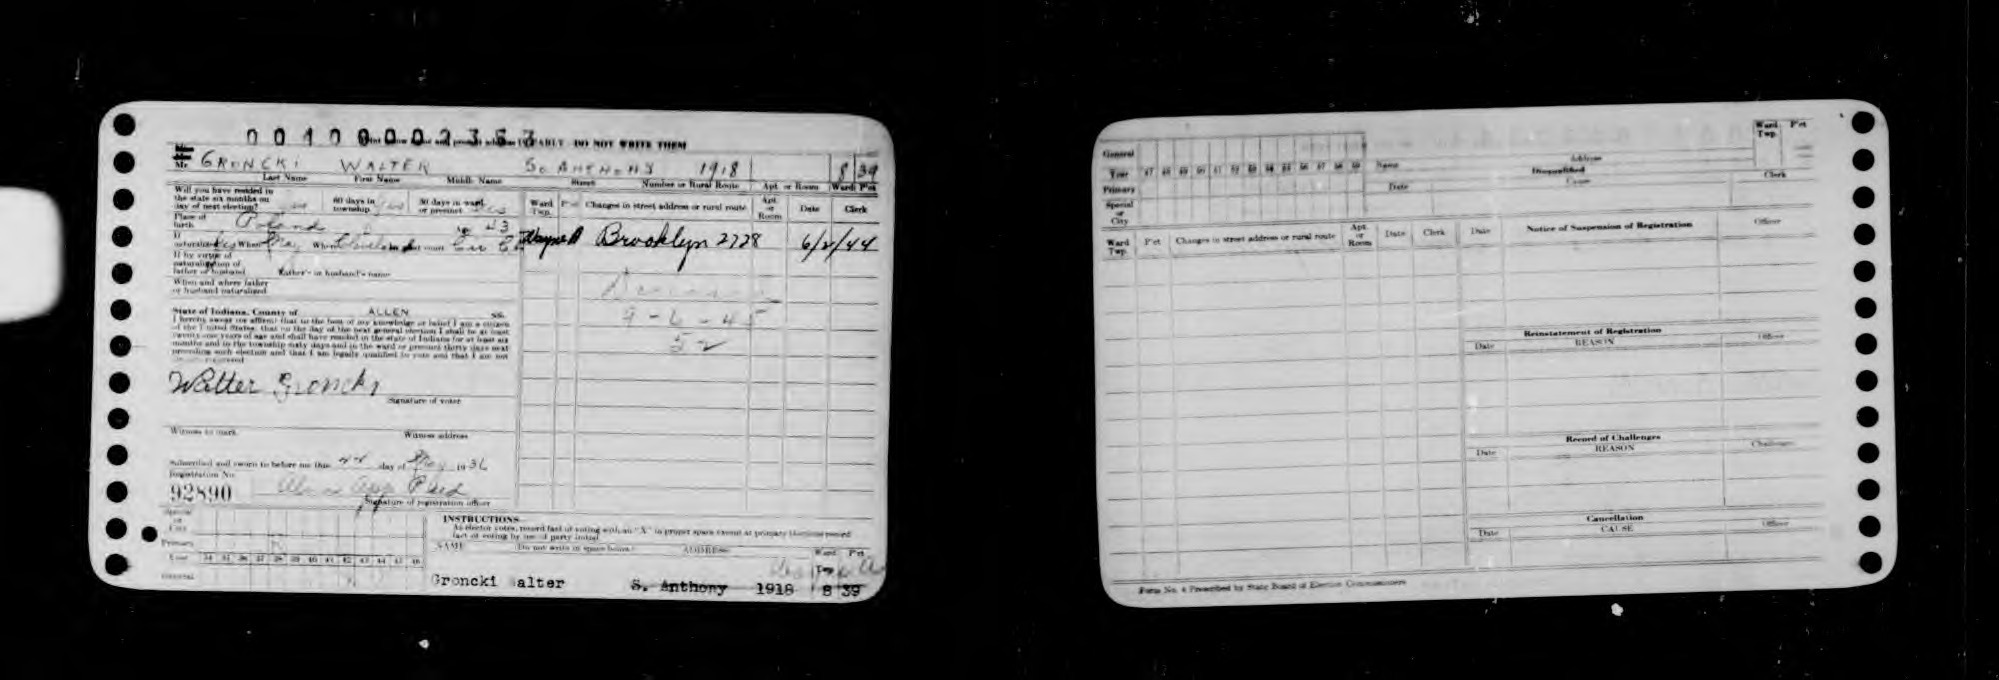 0010000 2357
ABLY DO NOT WRITE THEM
Mr. GRONCKI WALTER So ANTHONY 1918 8 39
Last Name First Name Middle Name Street Number or Rural Route Apt. or Room Ward P'ct
Will you have resided in the state six months on day of next election? yes 60 days in township yes 30 days in ward or precinct yes
Place of birth Poland Age 43
If naturalized yes When May Where Cleveland
If by virtue of naturalization of father or husband Father's or husband's name
When and where father or husband naturalized
State of Indiana, County of ALLEN ss.
I hereby swear (or affirm) that to the best of my knowledge or belief I am a citizen
of the United States, that on the day of the next general election I shall be at least
twenty-one years of age and shall have resided in the state of Indiana for at least six
months and in the township sixty days and in the ward or precinct thirty days next
preceding such election and that I am legally qualified to vote and that I am not
Walter Groncki
Signature of voter
Witness to mark Witness address
Subscribed and sworn to before me this day of 1936
Registration No.
92890
Signature of registration officer
Ward Twp. P'ct Changes in street address or rural route Apt. or Room Date Clerk
Wayne A Brooklyn 2728 6/2/44
9-6-45
52
Special or City
Primary
Year 34 35 36 37 38 39 40 41 42 43 44 45 46
General
INSTRUCTIONS
As elector votes, record fact of voting with an "X" in proper space except at primary elections record
fact of voting by use of party initial
NAME Do not write in space below ADDRESS Ward Twp. P'ct
Groncki alter S. Anthony 1918 8 39
General
Year 47 48 49 50 51 52 53 54 55 56 57 58 59
Primary
Special or City
Name Address Ward Twp. P'ct
Date Disqualified Cause Clerk
Ward Twp. P'ct Changes in street address or rural route Apt. or Room Date Clerk
Date Notice of Suspension of Registration Officer
Reinstatement of Registration
Date REASON Officer
Record of Challenges
Date REASON Challenger
Cancellation
Date CAUSE Officer
Form No. 4 Prescribed by State Board of Election Commissioners